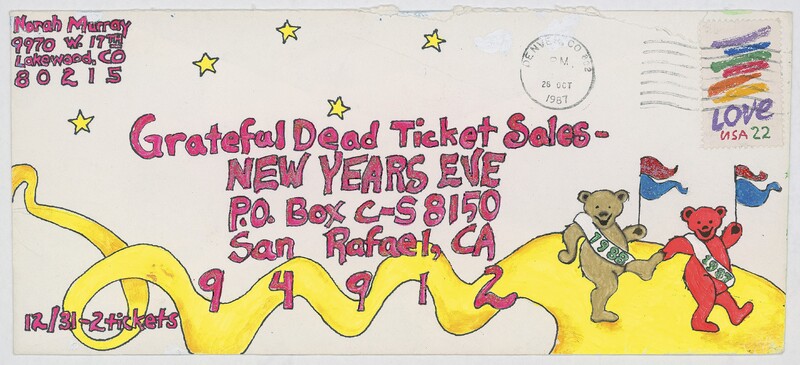 Norah Murray
9970 W. 17TH
Lakewood, CO
80215
DENVER, CO 802
PM
26 OCT
1987
LOVE
USA 22
Grateful Dead Ticket Sales-
NEW YEARS EVE
P.O. Box C-S 8150
San Rafael, CA
94912
12/31-2 tickets
1988
1987